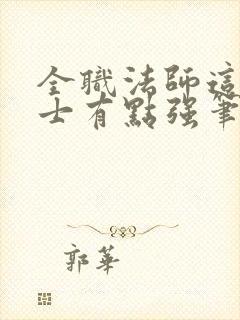 全職法師這
士有點強筆
郭華